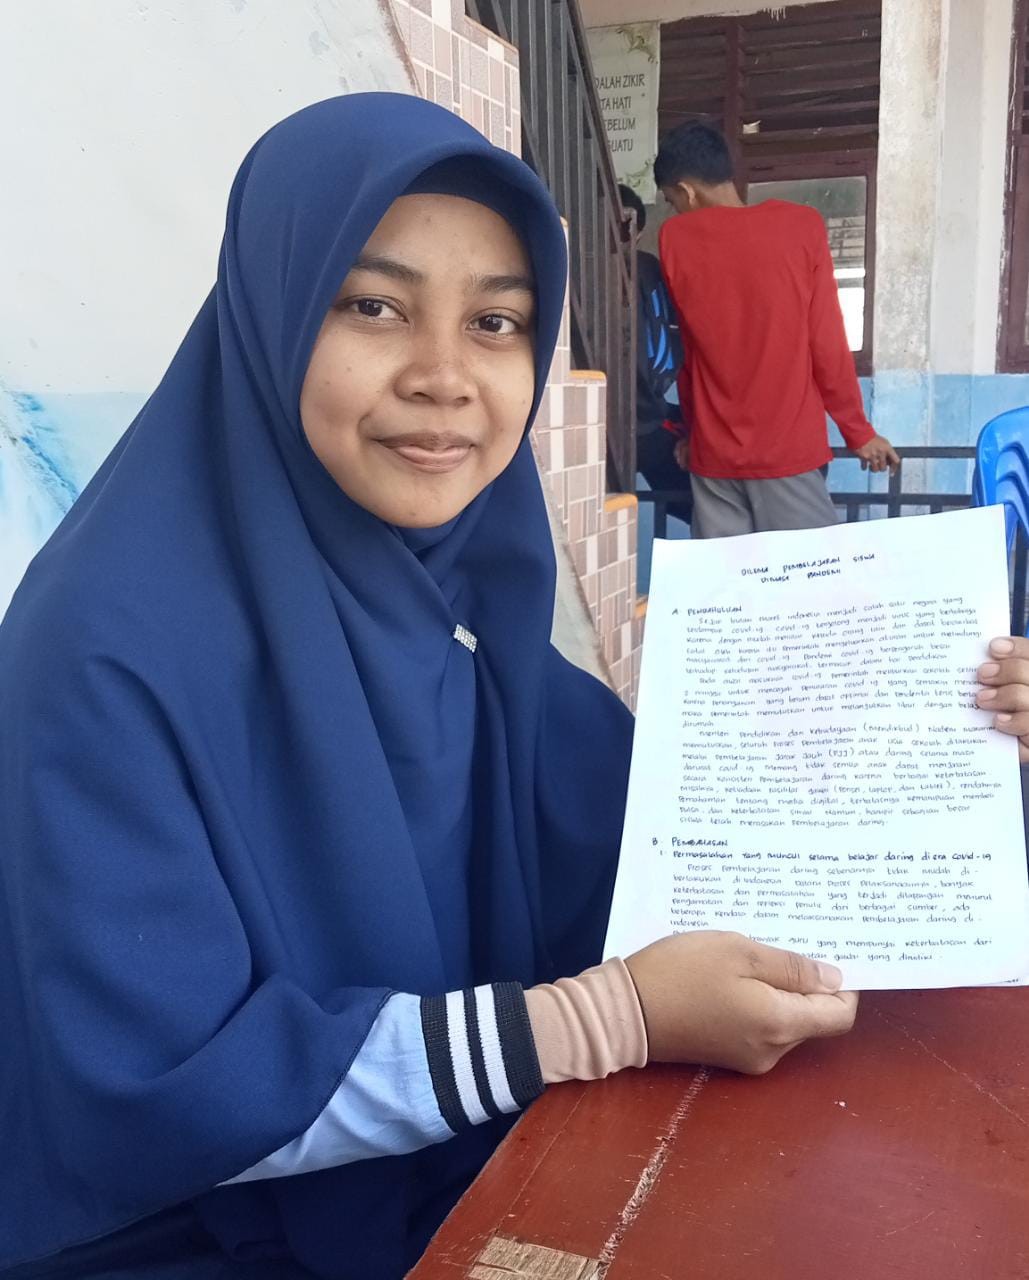 DALAH ZIKIR
TA HATI
EBELUM
UATU
DILEMA PEMBELAJARAN SISWA
DIMASA PANDEMI
A. PENDAHULUAN
Sejak bulan maret indonesia menjadi salah satu negara yang
terdampak covid-19. covid-19 tergolong menjadi virus yang berbahaya
karena dengan mudah menular kepada orang lain dan dapat berakibat
fatal oleh karena itu pemerintah mengeluarkan aturan untuk melindungi
masyarakat dari covid-19. Pandemi covid-19 berpengaruh besar
terhadap kehidupan masyarakat, termasuk dalam hal pendidikan.
Pada awal masuknya covid-19 pemerintah meliburkan sekolah selam
2 minggu untuk mencegah penularan covid-19 yang semakin
karena penanganan yang belum dapat optimal dan penderita terus
maka pemerintah memutuskan untuk melanjutkan libur dengan belaj
dirumah
Menteri pendidikan dan kebudayaan (mendikbud) Nadiem Makarim
memutuskan, seluruh proses pembelajaran anak usia sekolah dilakukan
melalui pembelajaran jarak jauh (PJJ) atau daring selama masa
darurat covid-19 memang tidak semua anak dapat menjalani
secara konsisten pembelajaran daring karena berbagai keterbatasan
misalnya, ketiadaan fasilitas gawai (ponsel, laptop, dan tablet), rendahnya
pemahaman tentang media digital, terbatasnya kemampuan membeli
pulsa, dan keterbatasan sinyal. Namun, hampir sebagian besar
siswa telah merasakan pembelajaran daring.
B. PEMBAHASAN
1. Permasalahan yang muncul selama belajar daring di era covid-19
Proses pembelajaran daring sebenarnya tidak mudah di-
berlakukan di indonesia. Dalam proses pelaksanaannya, banyak
keterbatasan dan permasalahan yang terjadi dilapangan menurut
pengamatan dan refleksi penulis dari berbagai sumber, ada
beberapa kendala dalam melaksanakan pembelajaran daring di-
indonesia
banyak guru yang mempunyai keterbatasan dari
gawai yang dimiliki.